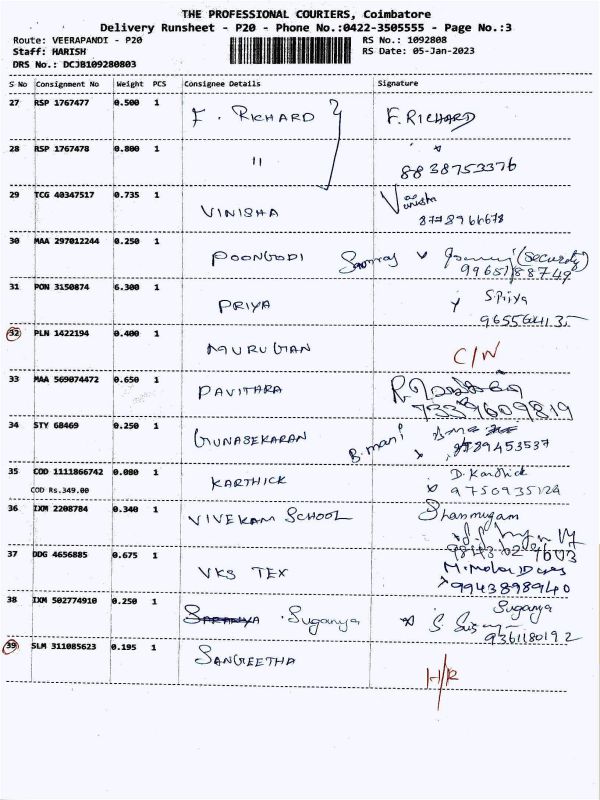 THE PROFESSIONAL COURIERS, Coimbatore
Delivery Runsheet - P20 - Phone No.:0422-3505555 - Page No.:3
Route: VEERAPANDI - P20 RS No.: 1092808
Staff: HARISH RS Date: 05-Jan-2023
DRS No.: DCJB109280803
S No Consignment No Weight PCS Consignee Details Signature
27 RSP 1767477 0.500 1 F. RICHARD F. RICHARD
28 RSP 1767478 0.800 1 " 8838753376
29 TCG 40347517 0.735 1 VINISHA Vinisha
8778966678
30 MAA 297012244 0.250 1 POONGODI (Security)
31 PON 3150874 6.300 1 PRIYA S. Priya
32 PLN 1422194 0.400 1 MURUGAN C/N
33 MAA 569074472 0.650 1 PAVITHRA
7339609819
34 STY 68469 0.250 1 GUNASEKARAN B. mani
9789453537
35 COD 1111866742 0.080 1 KARTHICK D. Karthick
COD Rs.349.00 9750935124
36 IXM 2208784 0.340 1 VIVEKAM SCHOOL Shanmugam
37 DDG 4656885 0.675 1 VKS TEX
9943898940
38 IXM 502774910 0.250 1 Suganya Suganya
9361180192
39 SLM 311085623 0.195 1 SANGEETHA H/R